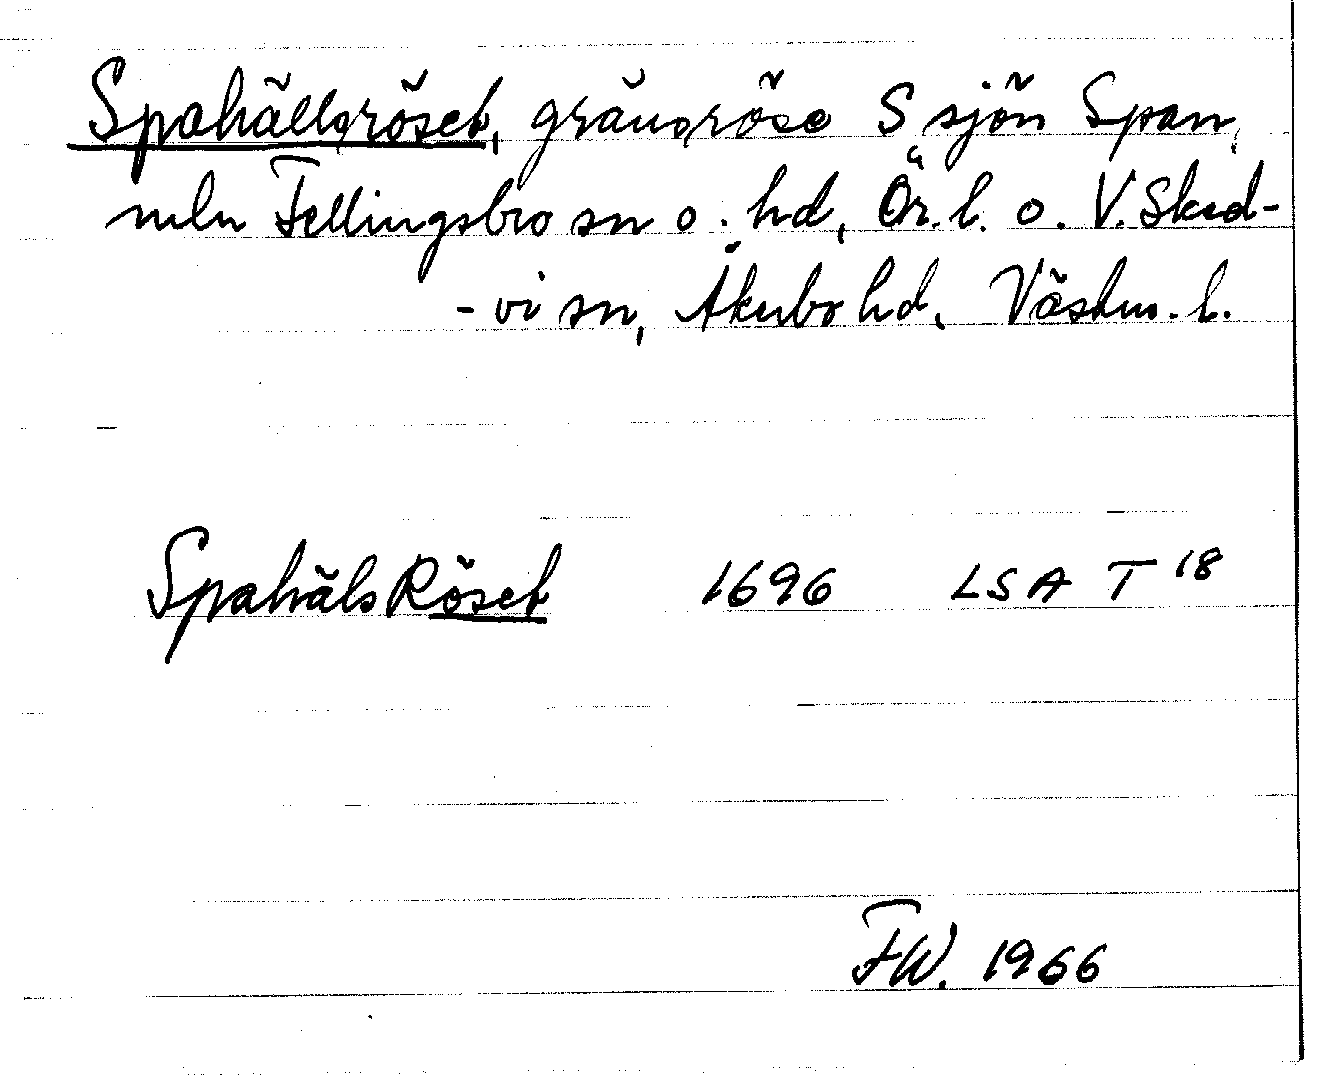 Spahällsröset, gränsröse S sjön Span,
mln Fellingsbro sn o. hd, Ör. l. o. V. Sked-
-vi sn, Åkerbo hd, Västm. l.
SpahälsRöset 1696 LSA T 18
FW. 1966